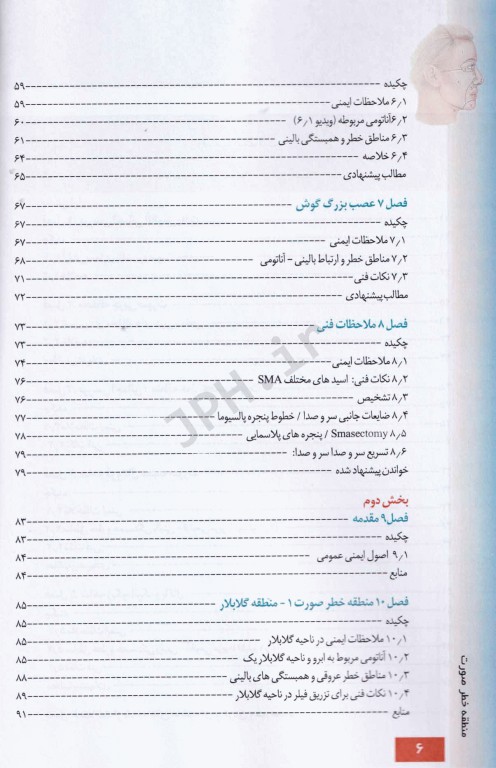 چکیده ---- ۵۹
۶٫۱ ملاحظات ایمنی ---- ۵۹
۶٫۲ آناتومی مربوطه (ویدیو ۶٫۱) ---- ۶۰
۶٫۳ مناطق خطر و همبستگی بالینی ---- ۶۱
۶٫۴ خلاصه ---- ۶۴
مطالب پیشنهادی ---- ۶۵
فصل ۷ عصب بزرگ گوش ---- ۶۷
چکیده ---- ۶۷
۷٫۱ ملاحظات ایمنی ---- ۶۷
۷٫۲ مناطق خطر و ارتباط بالینی - آناتومی ---- ۶۸
۷٫۳ نکات فنی ---- ۷۱
مطالب پیشنهادی ---- ۷۲
فصل ۸ ملاحظات فنی ---- ۷۳
چکیده ---- ۷۳
۸٫۱ ملاحظات ایمنی ---- ۷۴
۸٫۲ نکات فنی: اسید های مختلف SMA ---- ۷۶
۸٫۳ تشخیص ---- ۷۶
۸٫۴ ضایعات جانبی سر و صدا / خطوط پنجره پالسیوما ---- ۷۷
۸٫۵ Smasectomy / پنجره های پلاسمایی ---- ۷۸
۸٫۶ تسریع سر و صدا سر و صدا: ---- ۷۹
خواندن پیشنهاد شده ---- ۷۹
بخش دوم
فصل ۹ مقدمه ---- ۸۳
چکیده ---- ۸۳
۹٫۱ اصول ایمنی عمومی ---- ۸۴
منابع ---- ۸۴
فصل ۱۰ منطقه خطر صورت ۱ - منطقه گلابلار ---- ۸۵
چکیده ---- ۸۵
۱۰٫۱ ملاحظات ایمنی در ناحیه گلابلار ---- ۸۵
۱۰٫۲ آناتومی مربوط به ابرو و ناحیه گلابلار یک ---- ۸۵
۱۰٫۳ مناطق خطر عروقی و همبستگی های بالینی ---- ۸۸
۱۰٫۴ نکات فنی برای تزریق فیلر در ناحیه گلابلار ---- ۸۹
منابع ---- ۹۱
منطقه خطر صورت
۶
JPH.ir